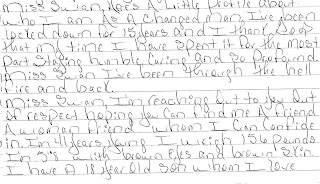 Miss Swan, Here's A Little Profile about
Who I am As A Changed man, I've been
locked down for 15 years and I thank God
that my time I have spent it for the most
Part Staying humble, Caring and So Profound
Miss Swan I've been through the hell
fire and back.
Miss Swan I'm reaching out to you Out
of respect hoping you Can find me A friend
A woman friend whom I Can Confide
in. I'm 41 years young I weigh 156 pounds
I'm 5'5" with brown Eyes and brown Skin
I have A 18 year old Son whom I love